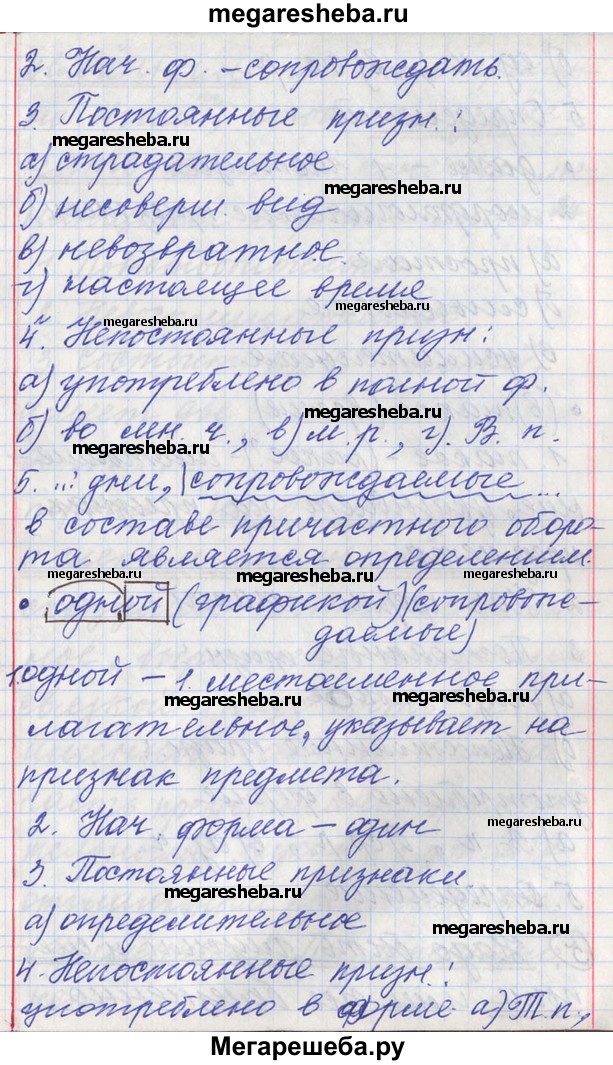 megaresheba.ru
2. Нач. ф. – сопровождать.
3. Постоянные призн.:
megaresheba.ru
а) страдательное
megaresheba.ru
б) несоверш. вид
в) невозвратное.
megaresheba.ru
г) настоящее время
megaresheba.ru
4. Непостоянные призн:
а) употреблено в полной ф.
megaresheba.ru
б) во мн. ч., в) м. р., г). В. п.
megaresheba.ru
5. ...: дни, |сопровождаемые ...
в составе причастного оборо-
та является определением.
megaresheba.ru megaresheba.ru megaresheba.ru
• одной (графикой) (сопровож-
даемые)
1. одной – 1. местоименное при-
megaresheba.ru megaresheba.ru
лагательное, указывает на
признак предмета.
megaresheba.ru
2. Нач. форма – один
megaresheba.ru
3. Постоянные признаки.
megaresheba.ru
а) определительное
megaresheba.ru
4. Непостоянные призн.:
megaresheba.ru
употреблено в форме а) Т. п.,
Мегарешеба.ру